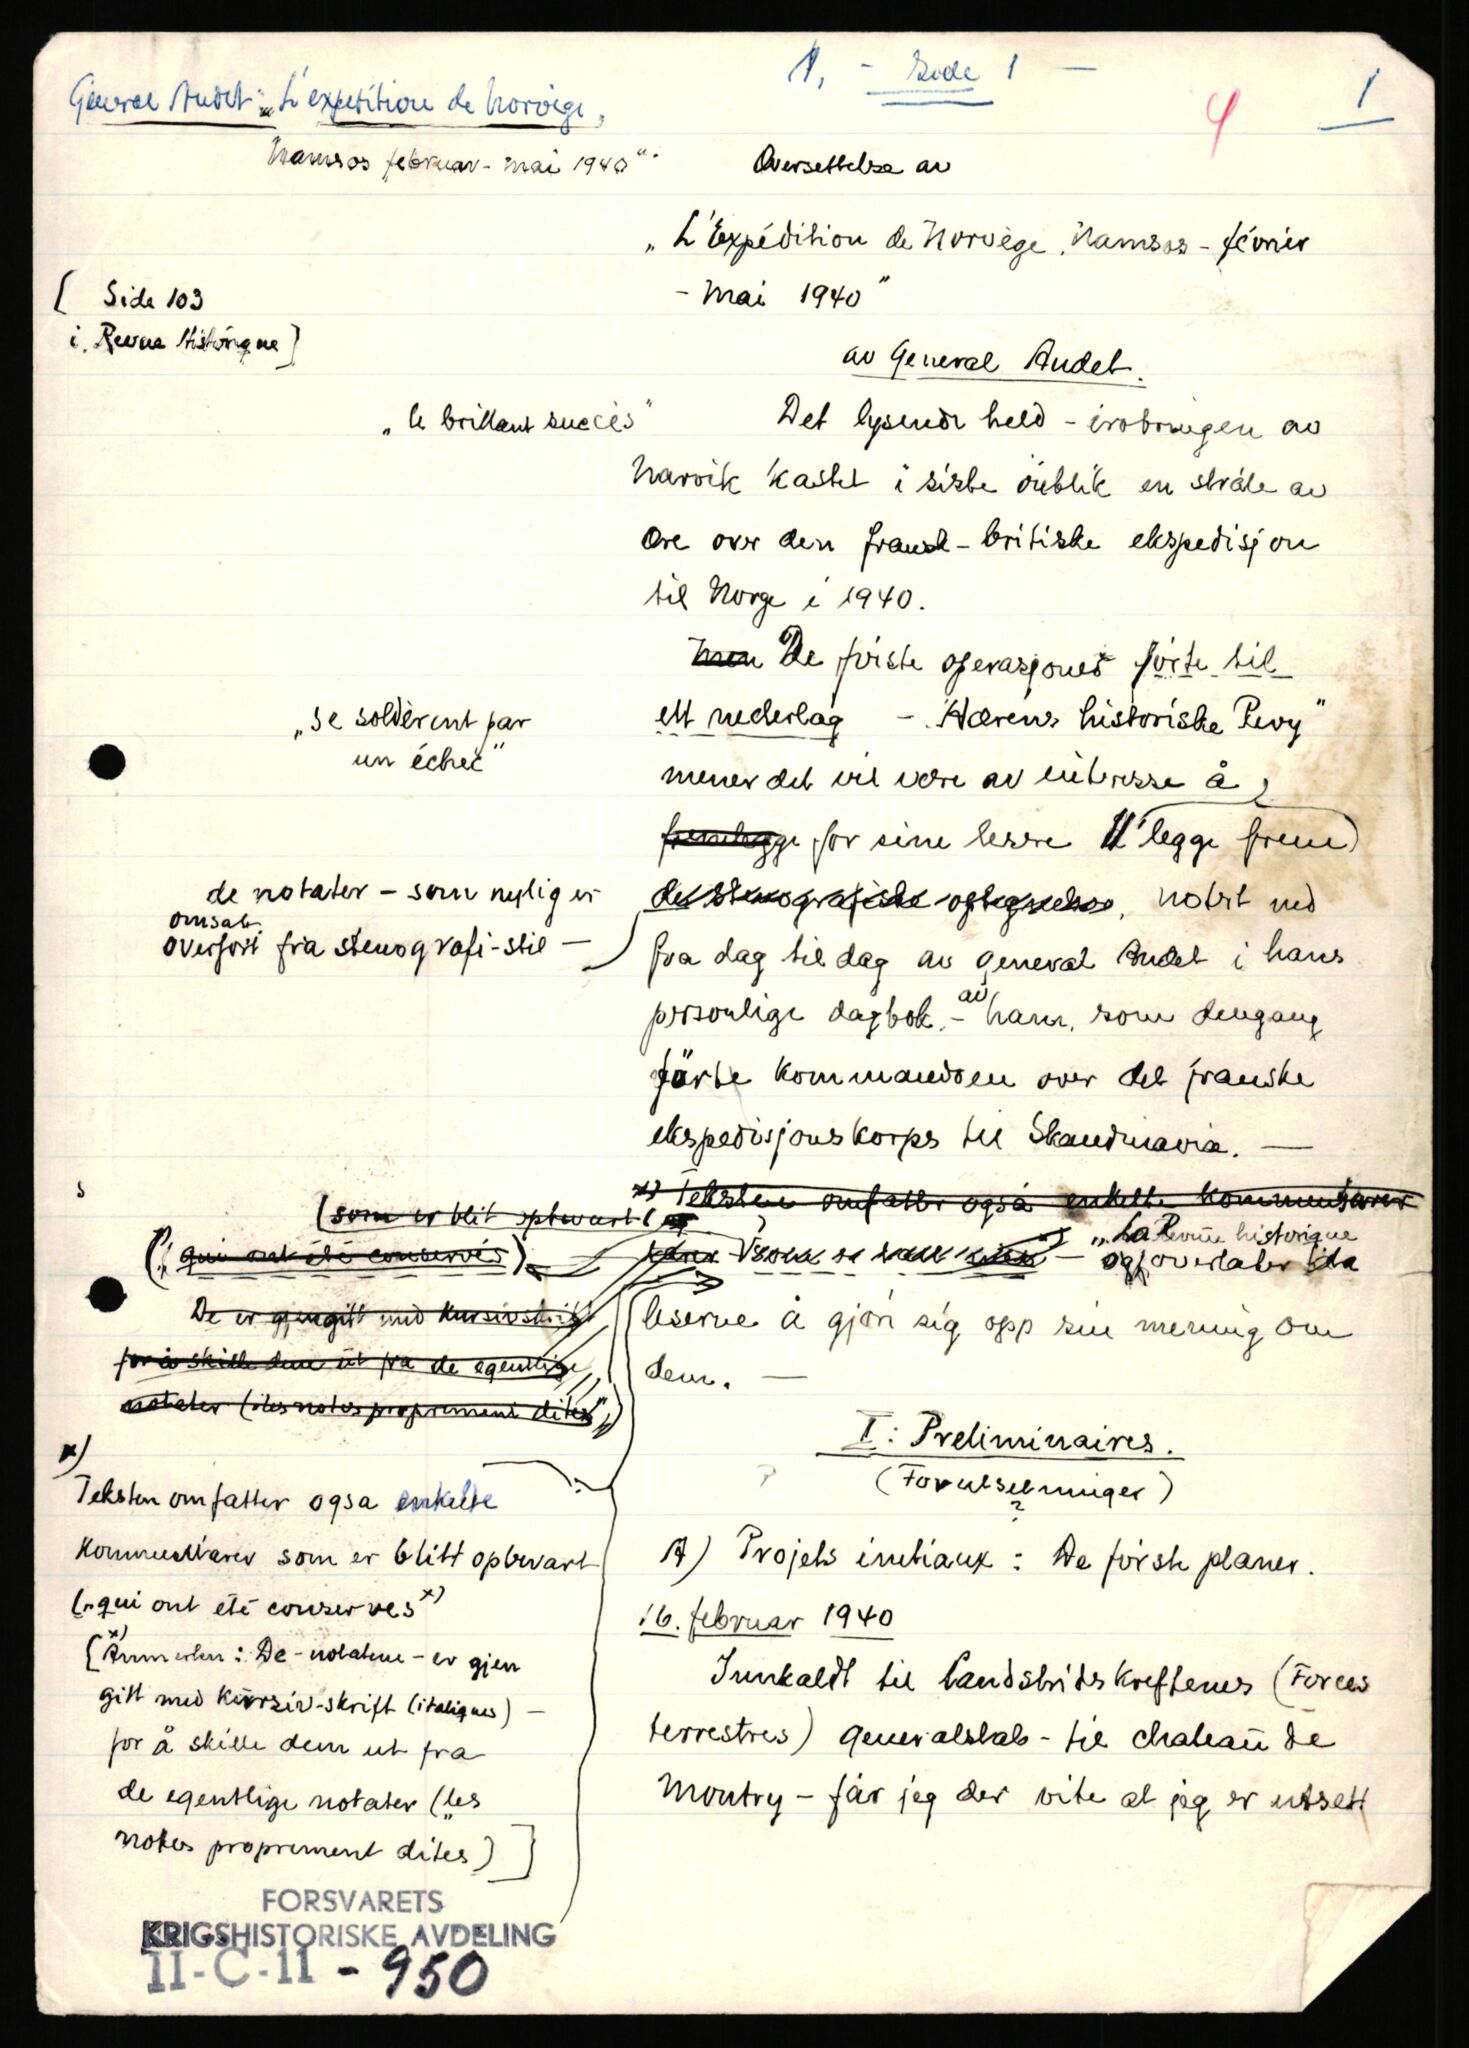 1. - Side 1 -
1
4
General Audet: „L'expedition de Norvège,
Namsos februar - mai 1940".
Oversettelse av
„L'Expédition de Norvège. Namsos - février
- Mai 1940"
av General Audet.
( Side 103
i. Revue Historique)
„le brillant succès"
Det lysende held - erobringen av
Narvik kastet i siste öieblik en stråle av
ære over den fransk - britiske ekspedisjon
til Norge i 1940.
Men De förste operasjoner förte til
ett nederlag - „Hærens historiske Revy"
„se soldèrent par
un échec"
mener det vil være av interesse å
fremlegge for sine lesere legge frem
de notater - som nylig er
omsatt
overfört fra stenografi-stil -
de stenografiske optegnelser, notert ned
fra dag til dag av general Audet i hans
personlige dagbok. - av ham, som dengang
förte kommandoen over det franske
ekspedisjonskorps til Skandinavia. -
x) Teksten omfatter også enkelte kommentarer
(som er blit opbevart
(„qui ont été conservés)
- „La Revue historique
overlater til
De er gjengitt med Kursivskrift
for å skille dem ut fra de egentlige
notater („les notes proprement dites")
leserne å gjöre sig opp sin mening om
dem. -
I: Preliminaires.
(Forutsetninger)
?
x)
Teksten omfatter ogsa enkelte
kommentarer som er blitt opbevart
(„qui ont été conserves x)
[x) Anmerkn: De - notatene - er gjen
gitt med Kursiv-skrift (italiques) -
for å skille dem ut fra
de egentlige notater („les
notes proprement dites) ]
A) Projets initiaux: De förste planer.
16. februar 1940
Innkaldt til Landstridskreftenes (Forces
terrestres) Generalstab - til chateau de
Montry - får jeg der vite at jeg er utsett
FORSVARETS
KRIGSHISTORISKE AVDELING
II-C-11 - 950